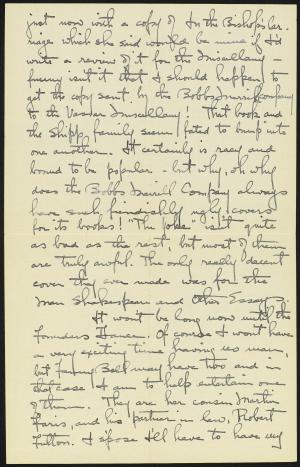 just now with a copy of In the Bishop's Car-
riage which she said would be mine if I'd
write a review of it for the Miscellany –
funny isn't it that I should happen to
get the copy sent by the Bobbs Merrill Company
to the Vassar Miscellany! That book and
the Shipp family seem fated to bump into
one another. It certainly is racy and
bound to be popular – but why, oh why
does the Bobbs Merrill Company always
have such fiendishly ugly covers
for its books! "The Yoke" isn't quite
as bad as the rest, but most of them
are truly awful. The only really decent
cover they ever made was for the
Man Shakespeare and Other Essays.
It won't be long now until the
Founders Dance. Of course I won't have
a very exciting time having no man,
but Fanny Bell may have two and in
that case I am to help entertain one
of them. They are her cousin Martin
Paris, and his partner in law, Robert
Fulton. I s'pose I'll have to have my